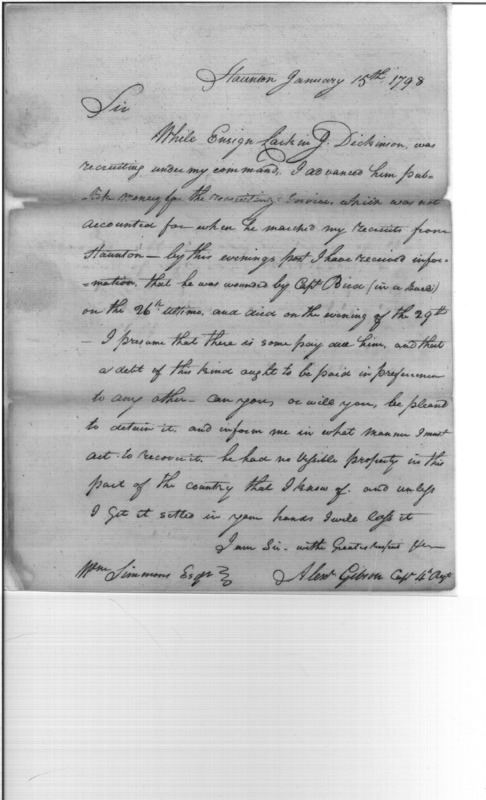 Staunton January 15th 1798
Sir
While Ensign Larkin G. Dickinson, was
recruiting under my command, I advanced him pub-
-lick money for the recruiting Service, which was not
accounted for when he marched my recruits from
Staunton — by this evenings post I have received infor-
-mation, that he was wounded by Capt Bird (in a Duel)
on the 26th ultimo, and died on the evening of the 29th
— I presume that there is some pay due him, and that
a debt of this kind ought to be paid in preference
to any other — can you, or will you, be pleased
to detain it, and inform me in what manner I must
act to recover it. he had no Visible property in this
part of the country that I know of. and unless
I get it settled in your hands I will lose it
I am Sir — with Great respect
Wm Simmons Esqr Alexr Gibson Capt 4th Regt